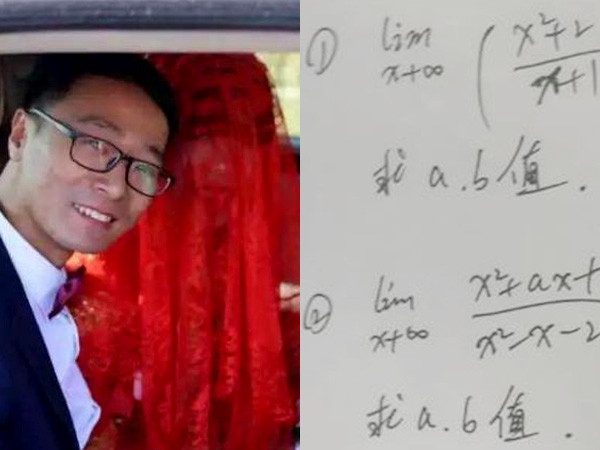 ① lim x→∞ ( x²+2 / x+1
求 a.b 值.
② lim x→∞ x²+ax+ / x²-x-2
求 a.b 值.